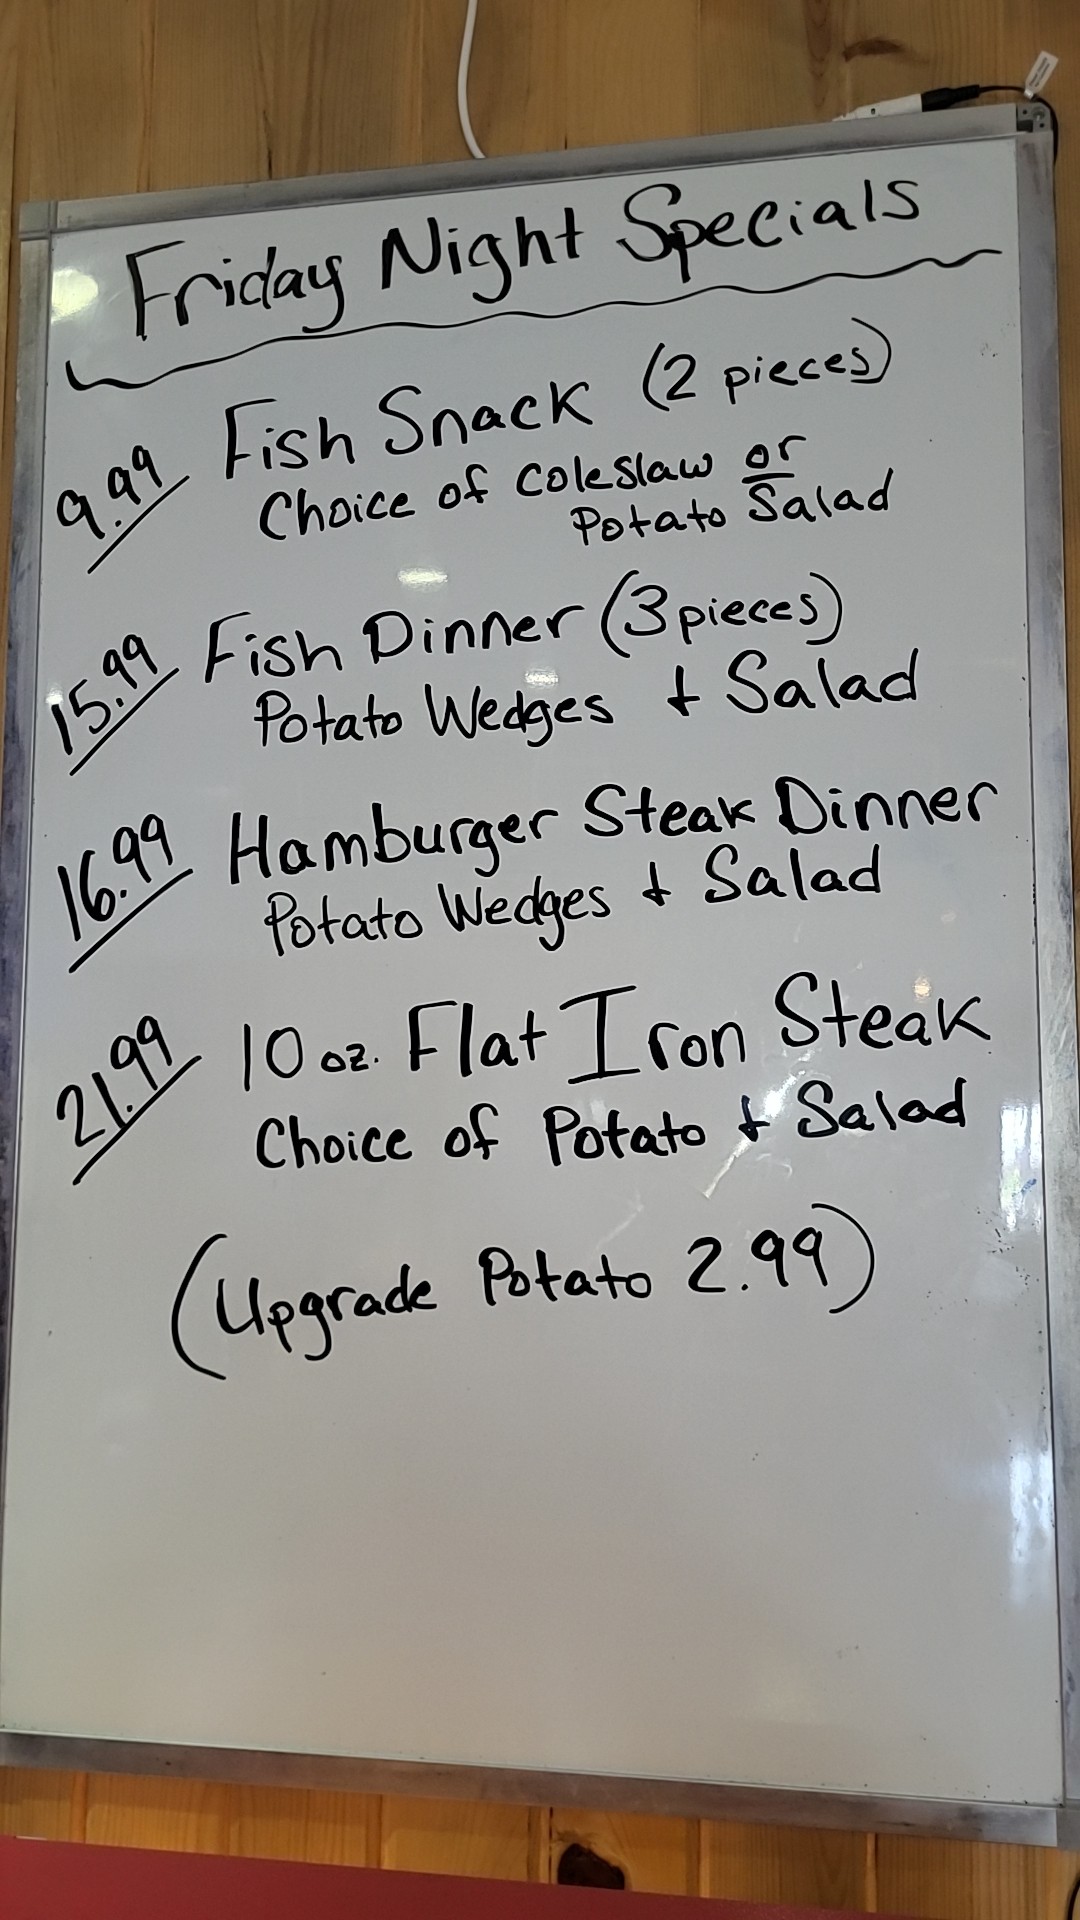 Friday Night Specials
9.99 Fish Snack (2 pieces)
Choice of Coleslaw or
Potato Salad
15.99 Fish Dinner (3 pieces)
Potato Wedges + Salad
16.99 Hamburger Steak Dinner
Potato Wedges + Salad
21.99 10 oz. Flat Iron Steak
Choice of Potato + Salad
(Upgrade Potato 2.99)